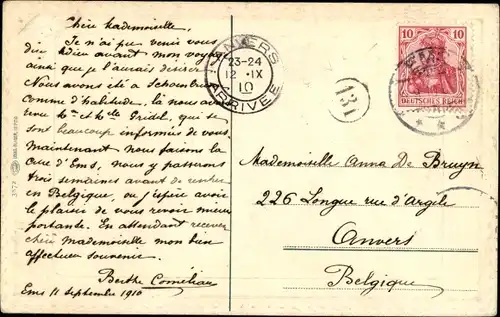 Chère Mademoiselle.
Je n'ai pu venir vous
dire adieu avant mon voyage
ainsi que je l'aurais désiré
Nous avons été à
comme d'habitude, là nous avons
vu Mr et Mlle qui se
sont beaucoup informés de vous.
Maintenant nous faisons la
Cure d'Ems, nous y passons
trois semaines avant de rentrer
en Belgique, où j'espère avoir
le plaisir de vous revoir mieux
portante. En attendant recevez
chère Mademoiselle mon bien
affectueux souvenir.
Berthe
Ems 11 Septembre 1910
3572
ANVERS
23-24
12 IX
10
ARRIVÉE
131
10 10
DEUTSCHES REICH
Mademoiselle Anna De Bruyn
226 Longue rue d'Argile
Anvers
Belgique